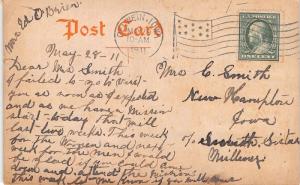 Mrs Ed O'Brien.
Post Card
10-AM
1911
May-28-11
Dear Mrs Smith
I failed to go to visit
you as soon as I expected
and as we have a Mission
start-today that will
last-two weeks. This week
for the Women and next-
week for Men I would
be glad if you could come
down and attend the Mission
This week let me know if you will come
Mrs C. Smith
New Hampton
Iowa
To Sister
Millinery